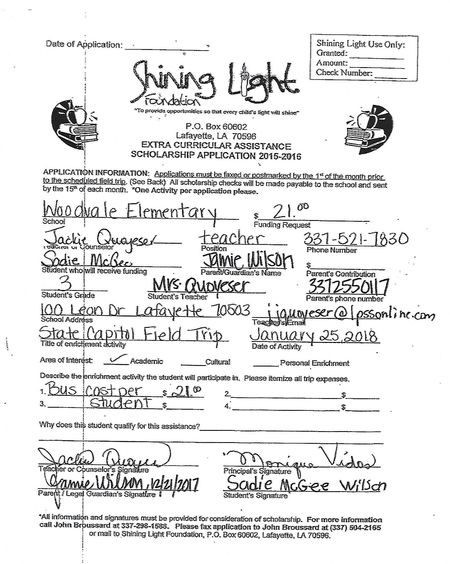 Date of Application:
Shining Light Use Only:
Granted:
Amount:
Check Number:
Shining Light
Foundation
"To provide opportunities so that every child's light will shine"
P.O. Box 60602
Lafayette, LA 70596
EXTRA CURRICULAR ASSISTANCE
SCHOLARSHIP APPLICATION 2015-2016
APPLICATION INFORMATION: Applications must be faxed or postmarked by the 1st of the month prior
to the scheduled field trip. (See Back) All scholarship checks will be made payable to the school and sent
by the 15th of each month. *One Activity per application please.
Woodvale Elementary $ 21.00
School Funding Request
Jackie Quoyeser teacher 337-521-7830
Teacher or Counselor Position Phone Number
Sadie McGee Jamie Wilson $
Student who will receive funding Parent/Guardian's Name Parent's Contribution
3 Mrs. Quoyeser 3372550117
Student's Grade Student's Teacher Parent's Number
100 Leon Dr Lafayette 70503 jjquoyeser@lpssonline.com
School Address Teacher's Email
State Capitol Field Trip January 25, 2018
Title of enrichment activity Date of Activity
Area of Interest: ✓ Academic Cultural Personal Enrichment
Describe the enrichment activity the student will participate in. Please itemize all trip expenses.
1. Bus cost per $ 21.00 2. $
3. student $ 4. $
Why does this student qualify for this assistance?
Jackie Quoyeser Monique Vidos
Teacher or Counselor's Signature Principal's Signature
Jamie Wilson, 12/21/2017 Sadie McGee Wilson
Parent / Legal Guardian's Signature Student's Signature
*All information and signatures must be provided for consideration of scholarship. For more information
call John Broussard at 337-298-1588. Please fax application to John Broussard at (337) 504-2165
or mail to Shining Light Foundation, P.O. Box 60602, Lafayette, LA 70596.